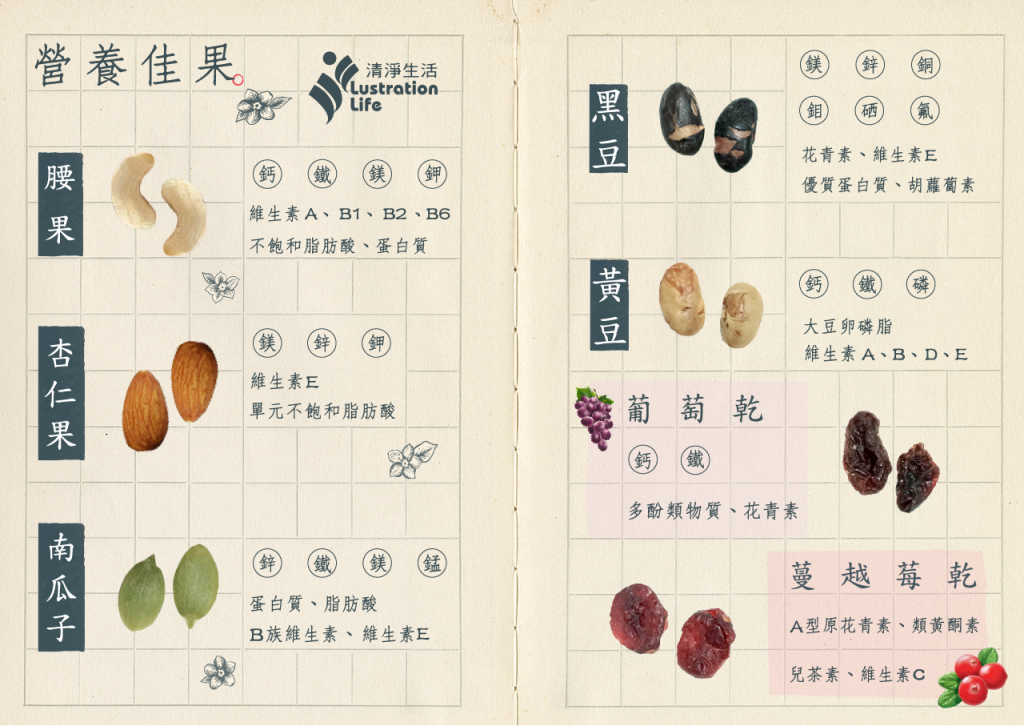 營養佳果
清淨生活
Lustration
Life
腰果
鈣 鐵 鎂 鉀
維生素A、B1、B2、B6
不飽和脂肪酸、蛋白質
杏仁果
鎂 鋅 鉀
維生素E
單元不飽和脂肪酸
南瓜子
鋅 鐵 鎂 錳
蛋白質、脂肪酸
B族維生素、維生素E
黑豆
鎂 鋅 銅
鉬 硒 氟
花青素、維生素E
優質蛋白質、胡蘿蔔素
黃豆
鈣 鐵 磷
大豆卵磷脂
維生素A、B、D、E
葡萄乾
鈣 鐵
多酚類物質、花青素
蔓越莓乾
A型原花青素、類黃酮素
兒茶素、維生素C